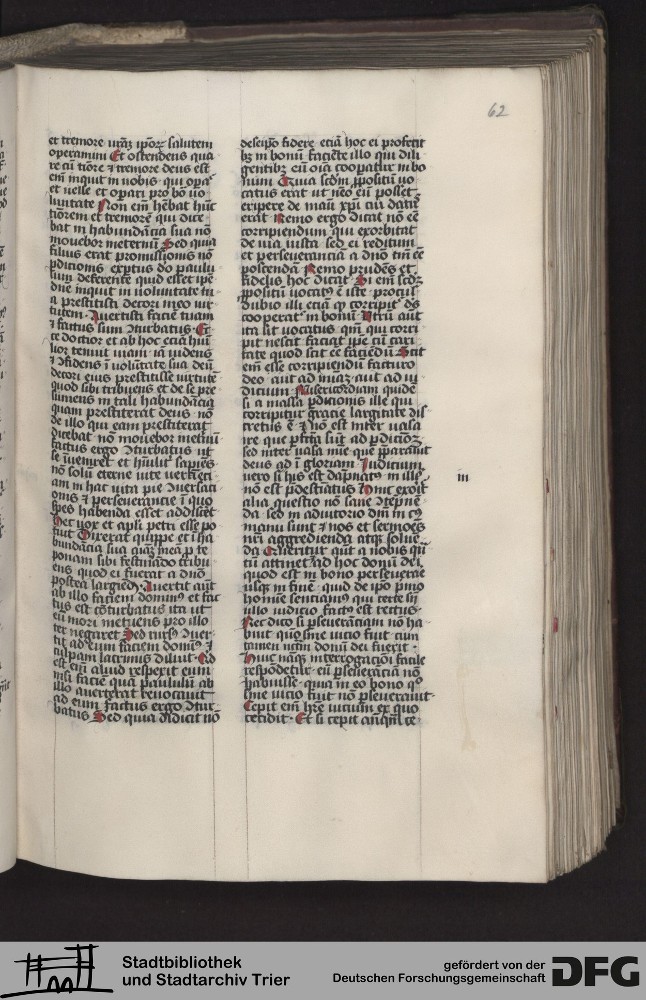 62
et tremore urāʒ ipōrꝝ salutem
operamini Et ostendens qua
re cū tiōre ⁊ tremore deus est
em̄ inquit in uobis qui opaʳ
et uelle et opari pro bō uo
luntate Non em̄ hēbat hūc
tiōrem et tremorē qui dice
bat in habundācia sua nō
mouebor meternū Sed quia
filius erat promissiōnis nō
ꝑdicionis exptus dō paulu
lum deserente quid esset ipē
dūe inquit in uoluntate tu
a prestitisti decori meo uir
tutem Auertisti faciē tuam
⁊ factus sum ꝯturbatus Ec
ce doctior et ab hoc eciā hūi
lior tenuit uiam iā uidens
⁊ ꝯfidens ī uolūtate sua deū
decori eius prestitisse uirtutē
quod sibi tribuens et de se pre
sumens in tali habundācia
quam prestiterat deus nō
de illo qui eam prestiterat
dicebat nō mouebor meternū
factus ergo ꝯturbatus ut
se īueniret et hūilit̄ sapiēs
nō solū eterne uite uerū eci
am in hac uita pie ꝯuersaci
onis ⁊ perseverancie ī quo
spes habenda esset addisceret
Hec uox et apli petri esse po
tuit Dixerat quippe et ī ha
bundācia sua aīaʒ meā ꝑ te
ponam sibi festinādo tribu
ens quod ei fuerat a dnō
postea largiēdū Auertit aūt
ab illo faciem dominus et fac
tus est cōturbatus ita ut
eū mori metuens pro illo
ter negaret Sed rursꝰ ꝯuer
tit ad eum faciem dominꝰ ⁊
culpam lacrimis diluit Qd
est em̄ aliud respexit eum
nisi faciē quā paululū ab
illo auerterat reuocauit
ad eum factus ergo ꝯtur
batus Sed quia didicit nō
deseipō fidere eciā hoc ei profecit
hʒ in bonū faciēte illo qui dili
gentibʒ eū oīa cooperātur in bo
num Quia scdm̄ ꝓpositū uo
catus erat ut nēo eū posset
eripere de mau xpī cui datꝰ
erat Nemo ergo dicat nō eē
corripiendum qui exorbitat
de uia iusta sed ei reditum
et perseuerancia a dnō tm̄ eē
poscenda Nemo prudēs et
fidelis hoc dicat Si em̄ scdʒ
ꝓpositū uocatꝰ ē iste procul
dubio illi eciā qꝫ corripitʳ dꝰ
cooperatʳ in bonū Utrū aūt
ita sit uocatus qm̄ qui corri
pit nescit faciat ipē cū cari
tate quod scit eē faciēdū Scit
em̄ esse corripiendū facturo
deo aut ad miāʒ aut ad iu
dicium Misericordiam quidē
si a massa ꝑdicionis ille qui
corripitur gracie largitate dis
cretus ē ⁊ nō est inter uasa
ire que ꝑfcā sūt ad ꝑdicioēʒ
sed inter uasa mīe que ꝑparauit
deus ad ī gloriam Iudicium
uero si hijs est dāpnatꝰ in illis
nō est ꝑdestinatus Hinc exorit̄
alia questio nō sane ꝯtēpnē
da sed in adiutorio dm̄ in cꝰ
manu sumꝰ ⁊ nos et sermōes
nr̄i aggredienda atqʒ solue
da Queritur qūt a nobis qū
tū attinet ad hoc donū dei
quod est in bono perseverare
usqʒ in fine quid de ipo pmo
homine senciamꝰ qui certe sn̄
ullo iudicio factꝰ est rectus
Nec dico si ꝑseuerāciam nō ha
buit quō sine uicio fuit cum
tamen istm̄ donū dei fuerit
Huic nāqʒ interrogaciōi facile
respōdetur eū ꝑseuerāciā nō
habuisse quia in eo bono qꝰ
sine uicio fuit nō ꝑseuerauit
Cepit em̄ hr̄e uicium ex quo
cecidit Et si cepit anq̄m̄ ce
iii
Stadtbibliothek
und Stadtarchiv Trier
gefördert von der
Deutschen Forschungsgemeinschaft
DFG